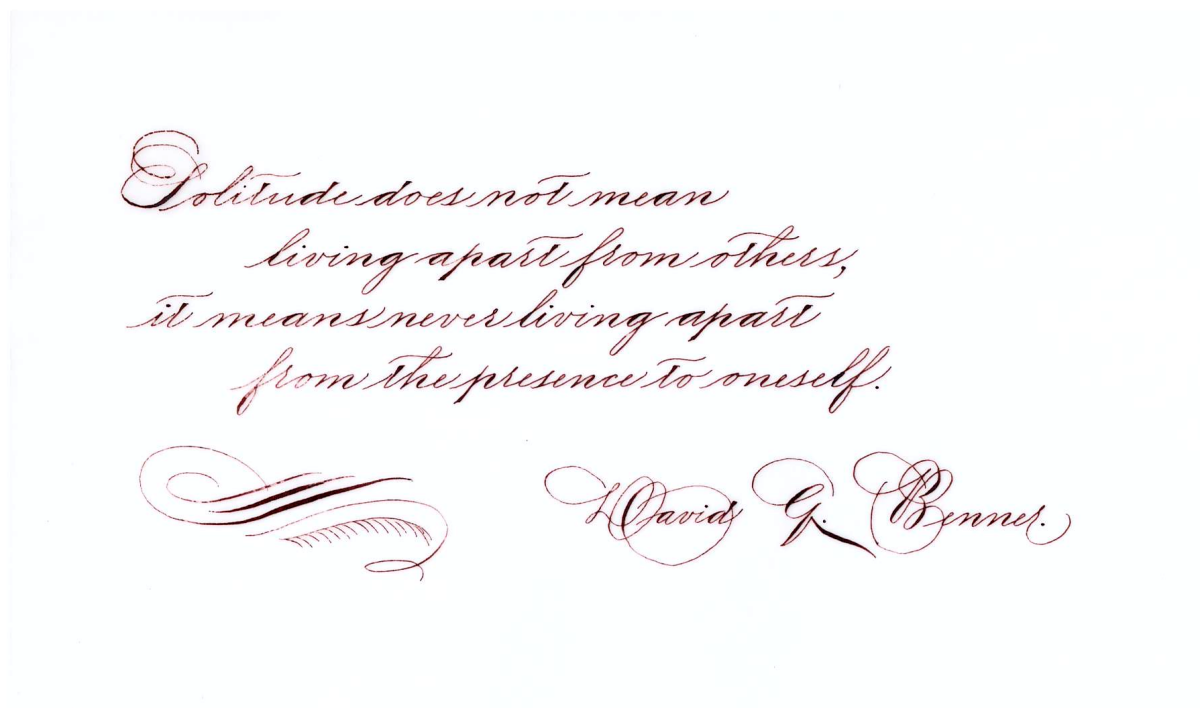 Solitude does not mean
living apart from others,
it means never living apart
from the presence to oneself.
David G. Benner.